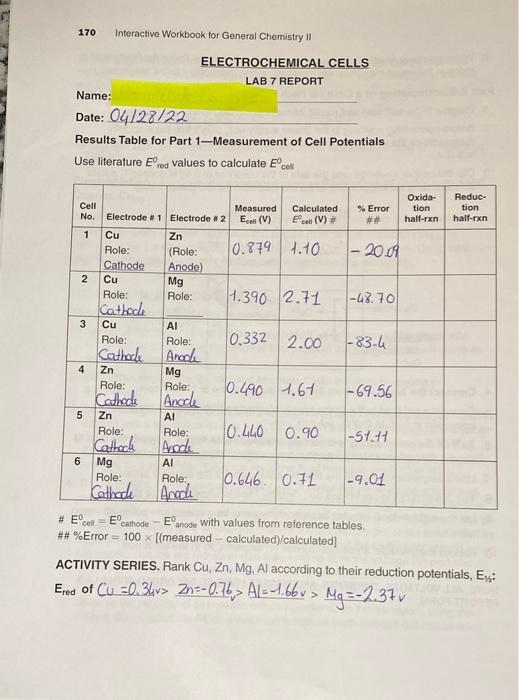 170 Interactive Workbook for General Chemistry II
ELECTROCHEMICAL CELLS
LAB 7 REPORT
Name:
Date: 04/28/22
Results Table for Part 1—Measurement of Cell Potentials
Use literature E⁰red values to calculate E⁰cell
Cell No. Electrode # 1 Electrode # 2 Measured Ecell (V) Calculated E⁰cell (V) # % Error ## Oxida-tion half-rxn Reduc-tion half-rxn
1 Cu Role: Cathode Zn (Role: Anode) 0.879 1.10 -20.09
2 Cu Role: Cathode Mg Role: 1.390 2.71 -48.70
3 Cu Role: Cathode Al Role: Anode 0.332 2.00 -83.4
4 Zn Role: Cathode Mg Role: Anode 0.490 1.61 -69.56
5 Zn Role: Cathode Al Role: Anode 0.440 0.90 -51.11
6 Mg Role: Cathode Al Role: Anode 0.646 0.71 -9.01
# E⁰cell = E⁰cathode – E⁰anode with values from reference tables.
## %Error = 100 × [(measured – calculated)/calculated]
ACTIVITY SERIES. Rank Cu, Zn, Mg, Al according to their reduction potentials, E½:
Ered of Cu =0.34v> Zn=-0.76v> Al=-1.66v > Mg=-2.37v